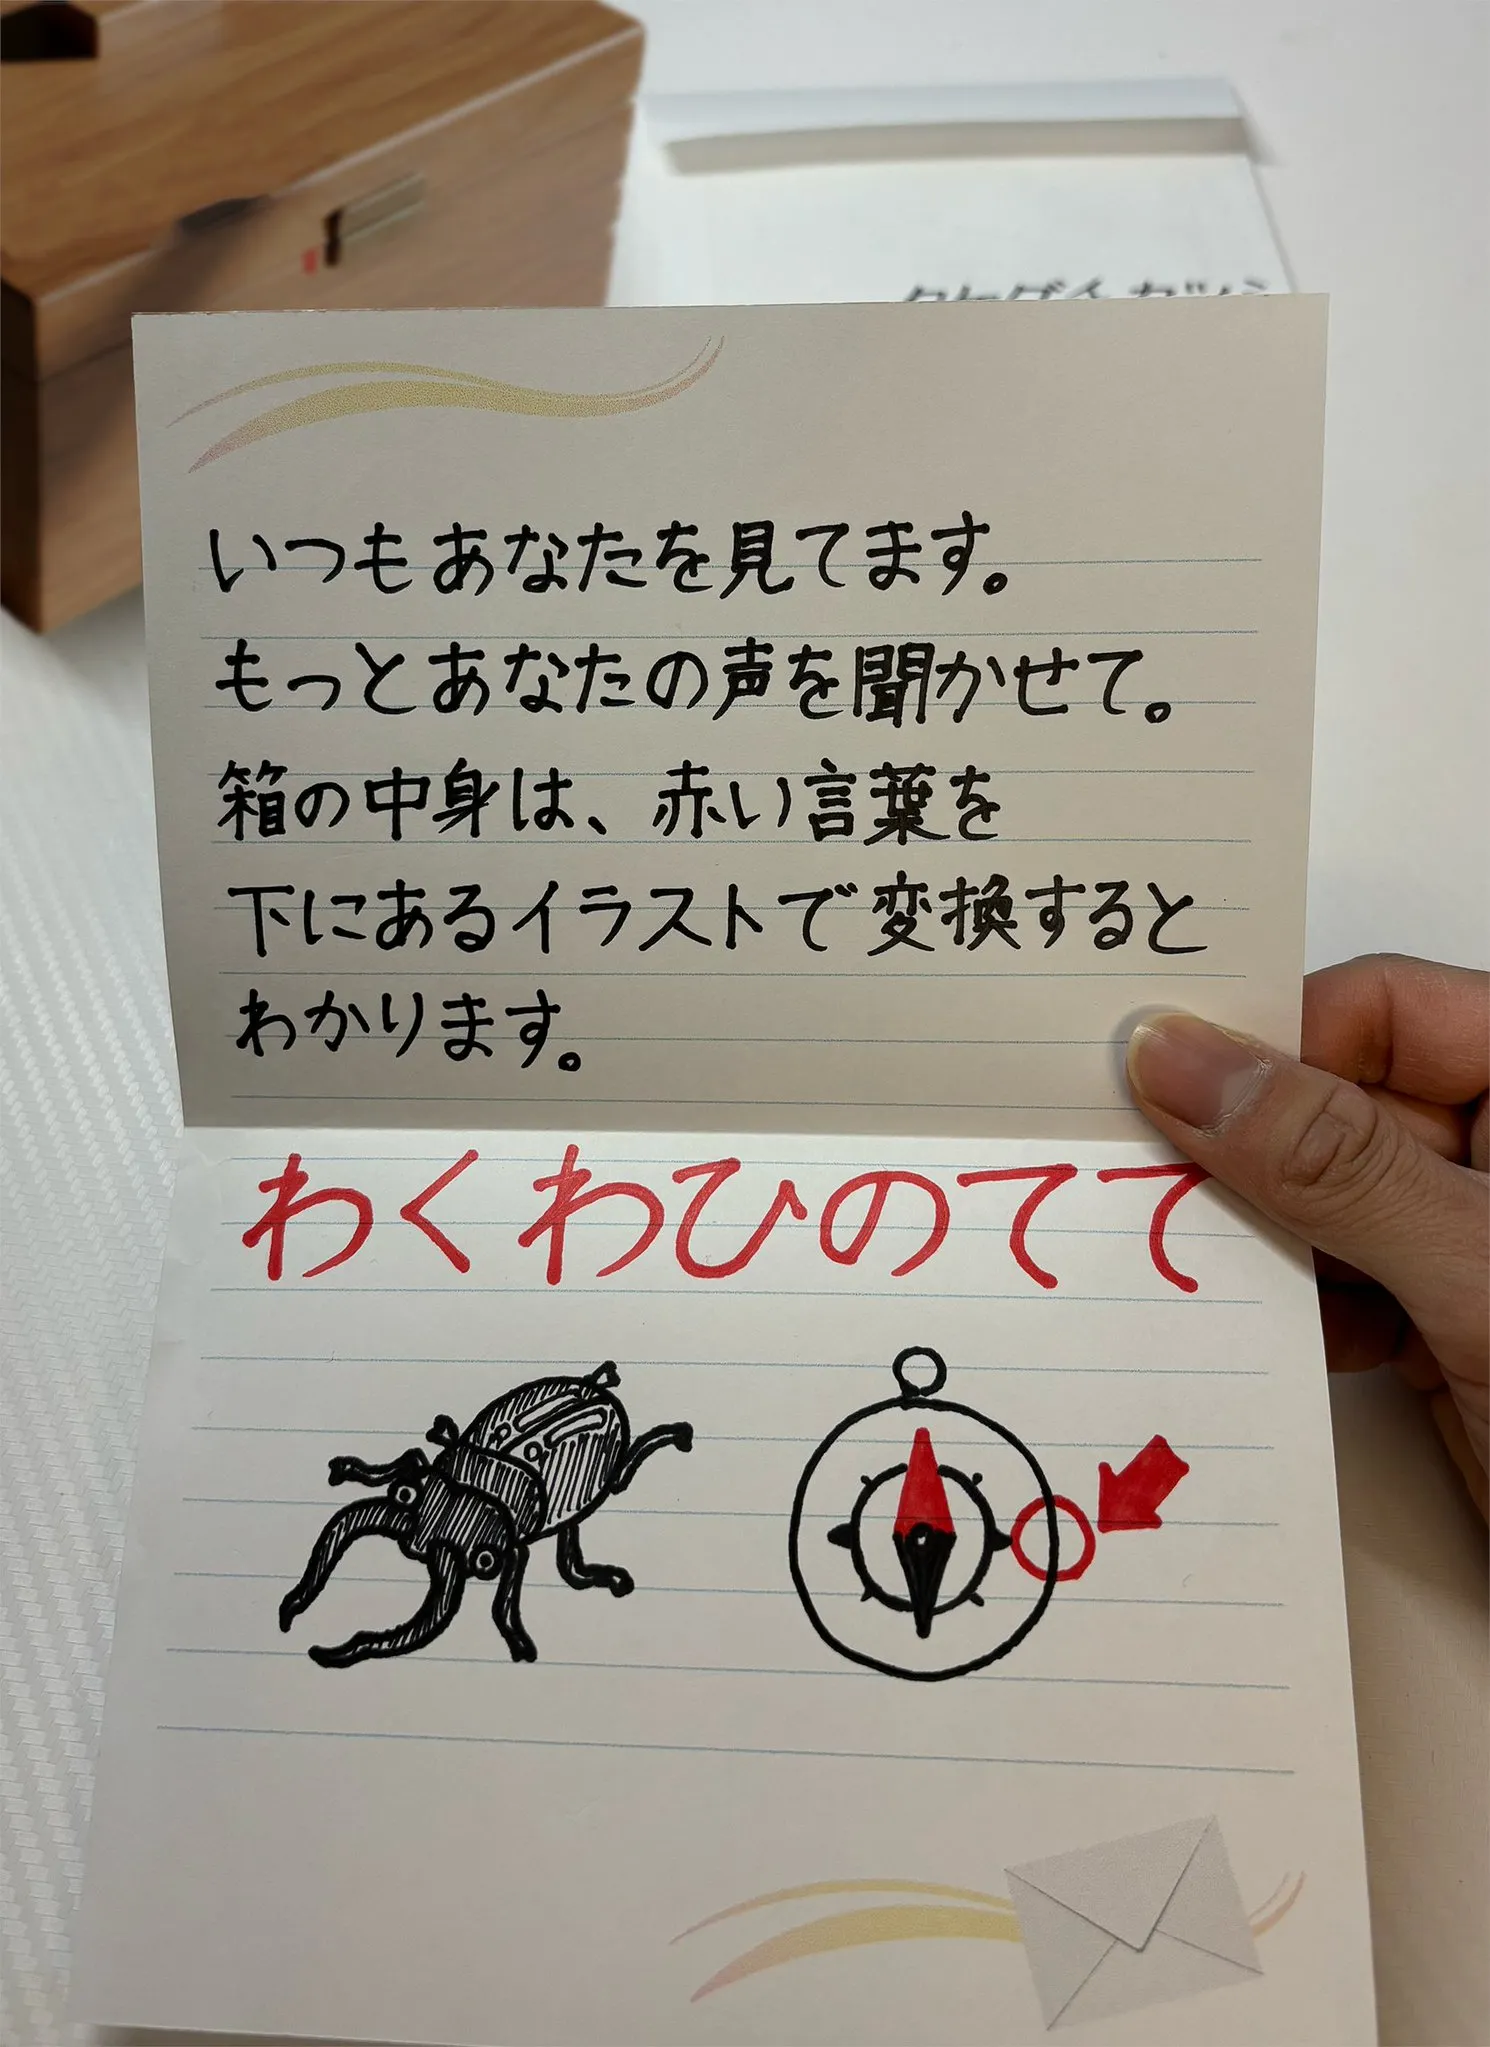 いつもあなたを見てます。
もっとあなたの声を聞かせて。
箱の中身は、赤い言葉を
下にあるイラストで変換すると
わかります。
わくわひのてて